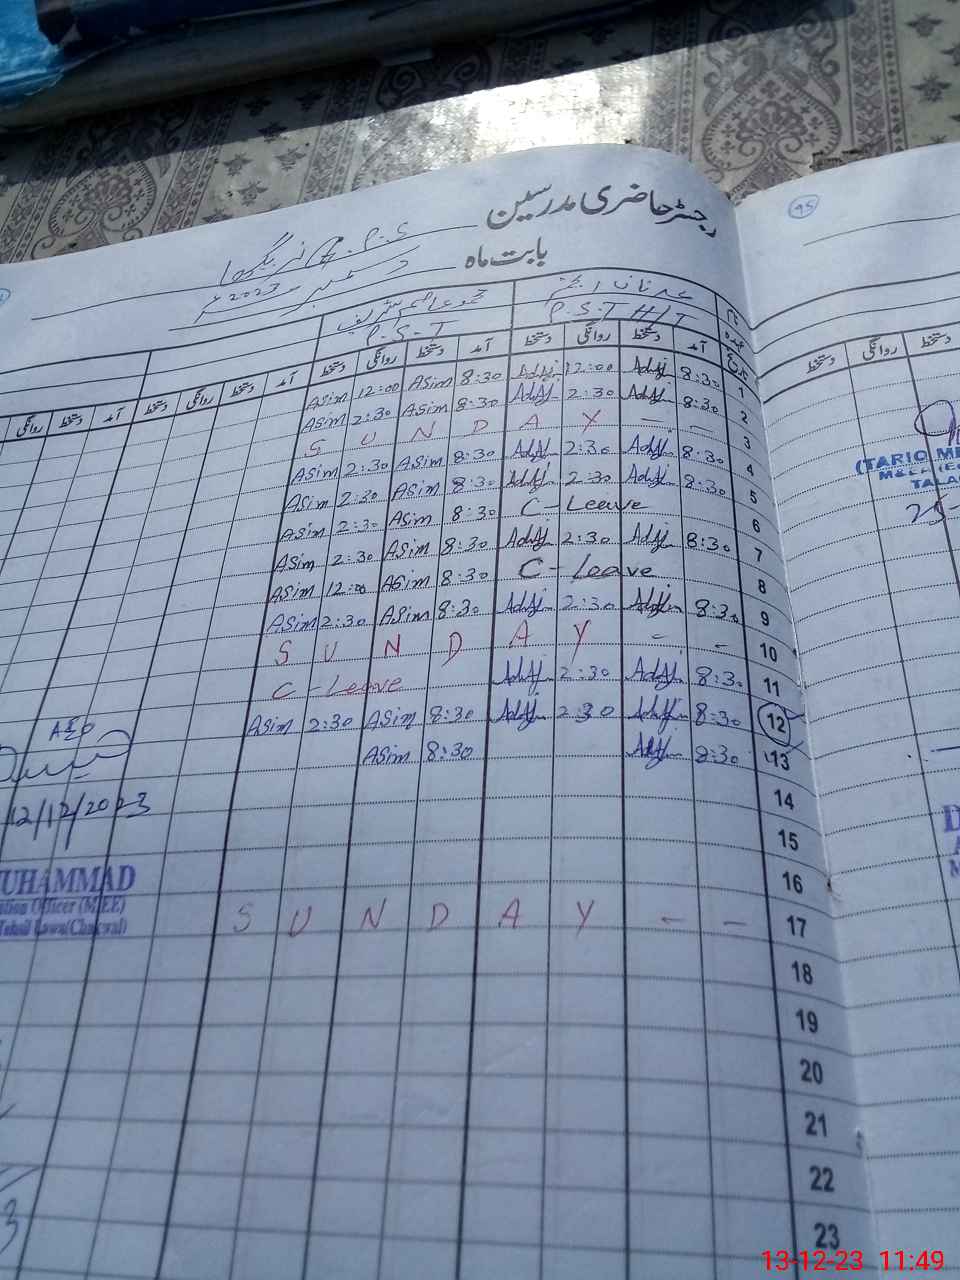 رجسٹر حاضری مدرسین
G.P.S
بابت ماہ دسمبر 2023
95
P.S.T H/T P.S.T
نام
عہدہ
تاریخ آمد دستخط روانگی دستخط آمد دستخط روانگی دستخط آمد دستخط روانگی دستخط آمد دستخط روانگی
روانگی دستخط
1 8:30 12:00 8:30 Asim 12:00 Asim
2 8:30 2:30 8:30 Asim 2:30 Asim
3 S U N D A Y - -
4 8:30 2:30 8:30 Asim 2:30 Asim
5 8:30 2:30 8:30 Asim 2:30 Asim
6 C-Leave 8:30 Asim 2:30 Asim
7 8:30 2:30 8:30 Asim 2:30 Asim
8 C-Leave 8:30 Asim 12:00 Asim
9 8:30 2:30 8:30 Asim 2:30 Asim
10 S U N D A Y - -
11 8:30 2:30 C-Leave
12 8:30 2:30 8:30 Asim 2:30 Asim
13 8:30 8:30 Asim
14
15
16
17 S U N D A Y - -
18
19
20
21
22
23
(TARIQ
TALA
25-
AEO
12/12/2023
UHAMMAD
tion Officer (M.EE)
Tehsil Lawa(Chakwal)
13-12-23 11:49